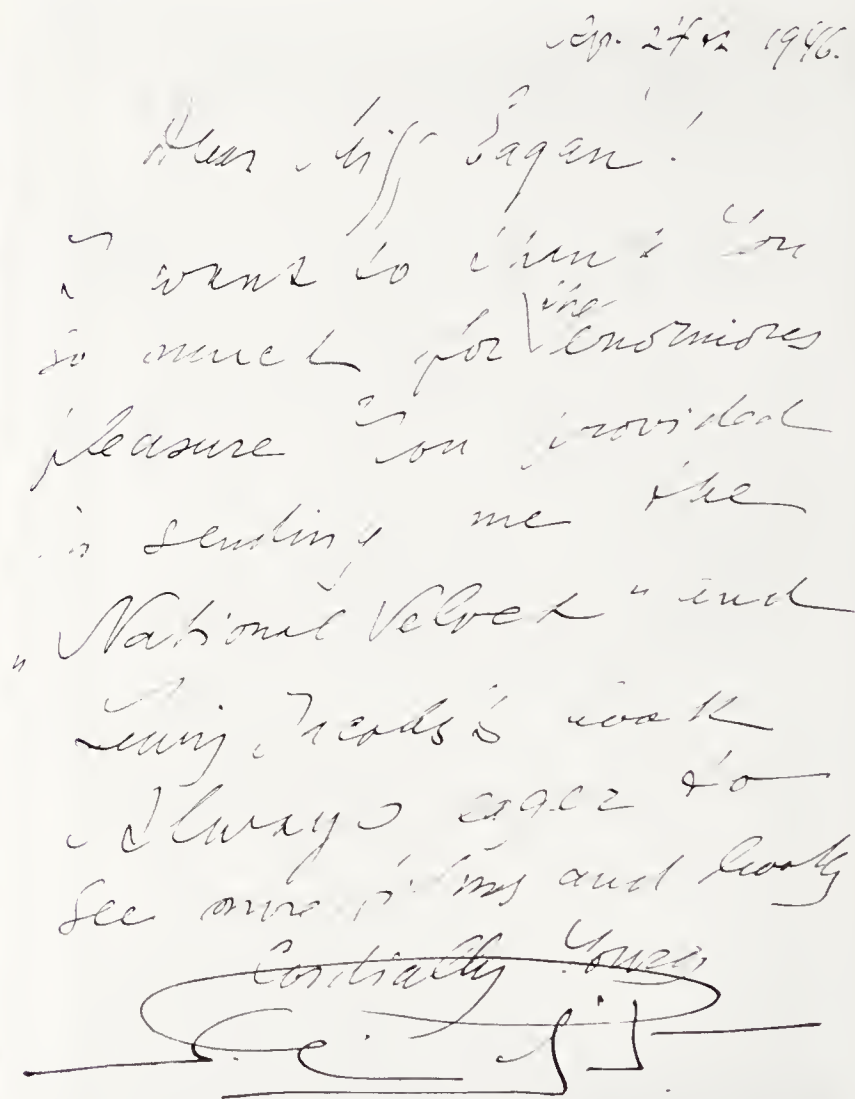 Ap. 27th 1946.
Dear Miss Eagan!
I want to thank You
so much for the enormiores
pleasure You provided
in sending me the
„National Velvet" and
Lewis Jacobs's book
Always eager to
see more films and books
Cordially Yours